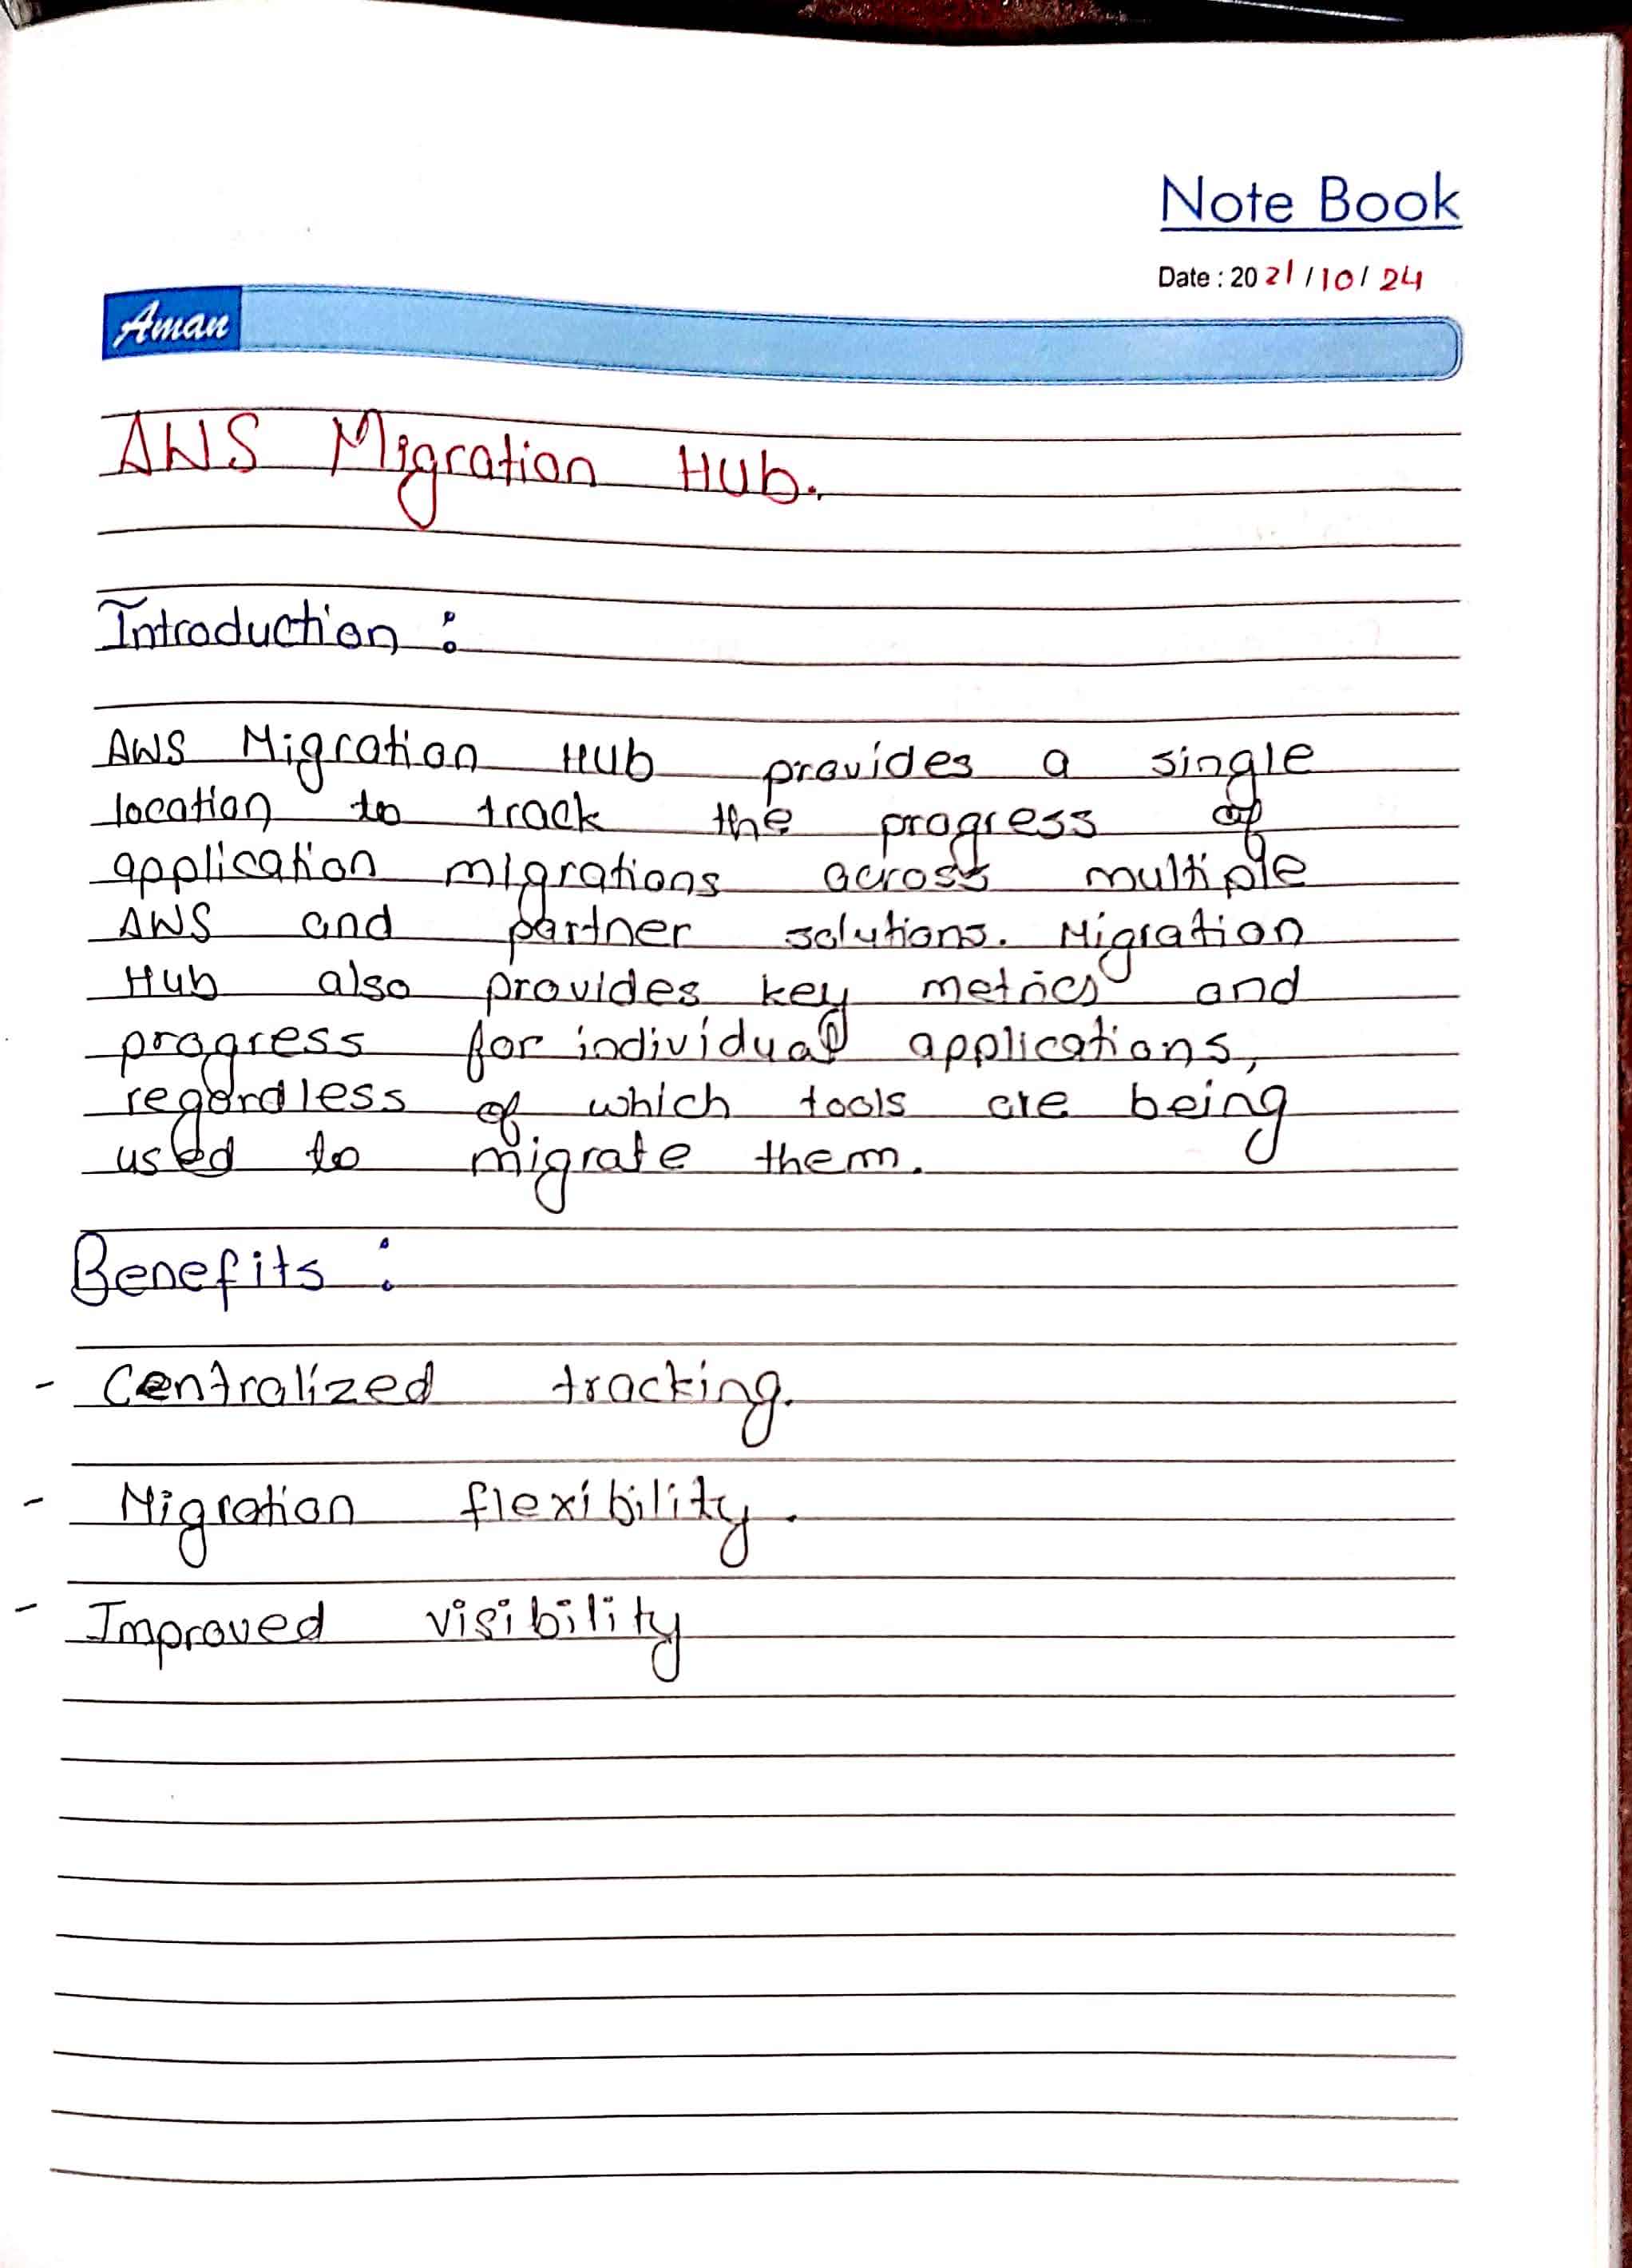 Note Book
Date : 2021/10/24
Aman
AWS Migration Hub.
Introduction :
AWS Migration Hub provides a single
location to track the progress of
application migrations across multiple
AWS and partner solutions. Migration
Hub also provides key metrics and
progress for individual applications,
regardless of which tools are being
used to migrate them.
Benefits :
- Centralized tracking.
- Migration flexibility.
- Improved visibility